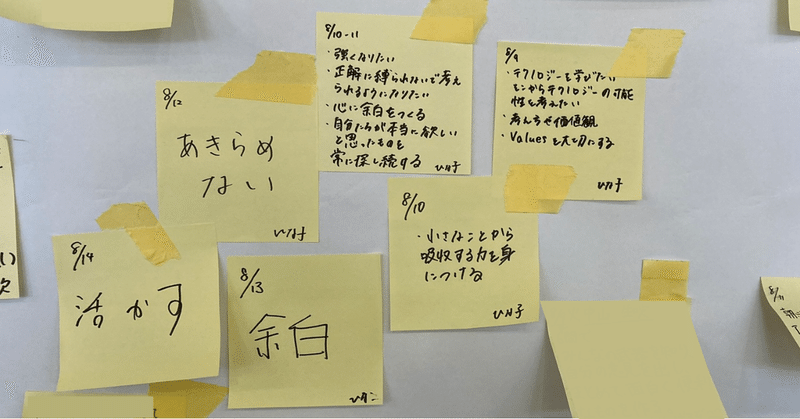 8/10-11
・強くなりたい
・正解に縛られないで考え
られるようになりたい
・心に余白をつくる
・自分たちが本当に欲しい
と思ったものを
常に探し続する
8/9
・テクノロジーを学びたい
そこからテクノロジーの可能
性を考えたい
・考え方や価値観
・Valuesを大切にする
8/12
あきらめ
ない
8/10
・小さなことから
吸収する力を身
につける
8/14
活かす
8/13
余白
8/11